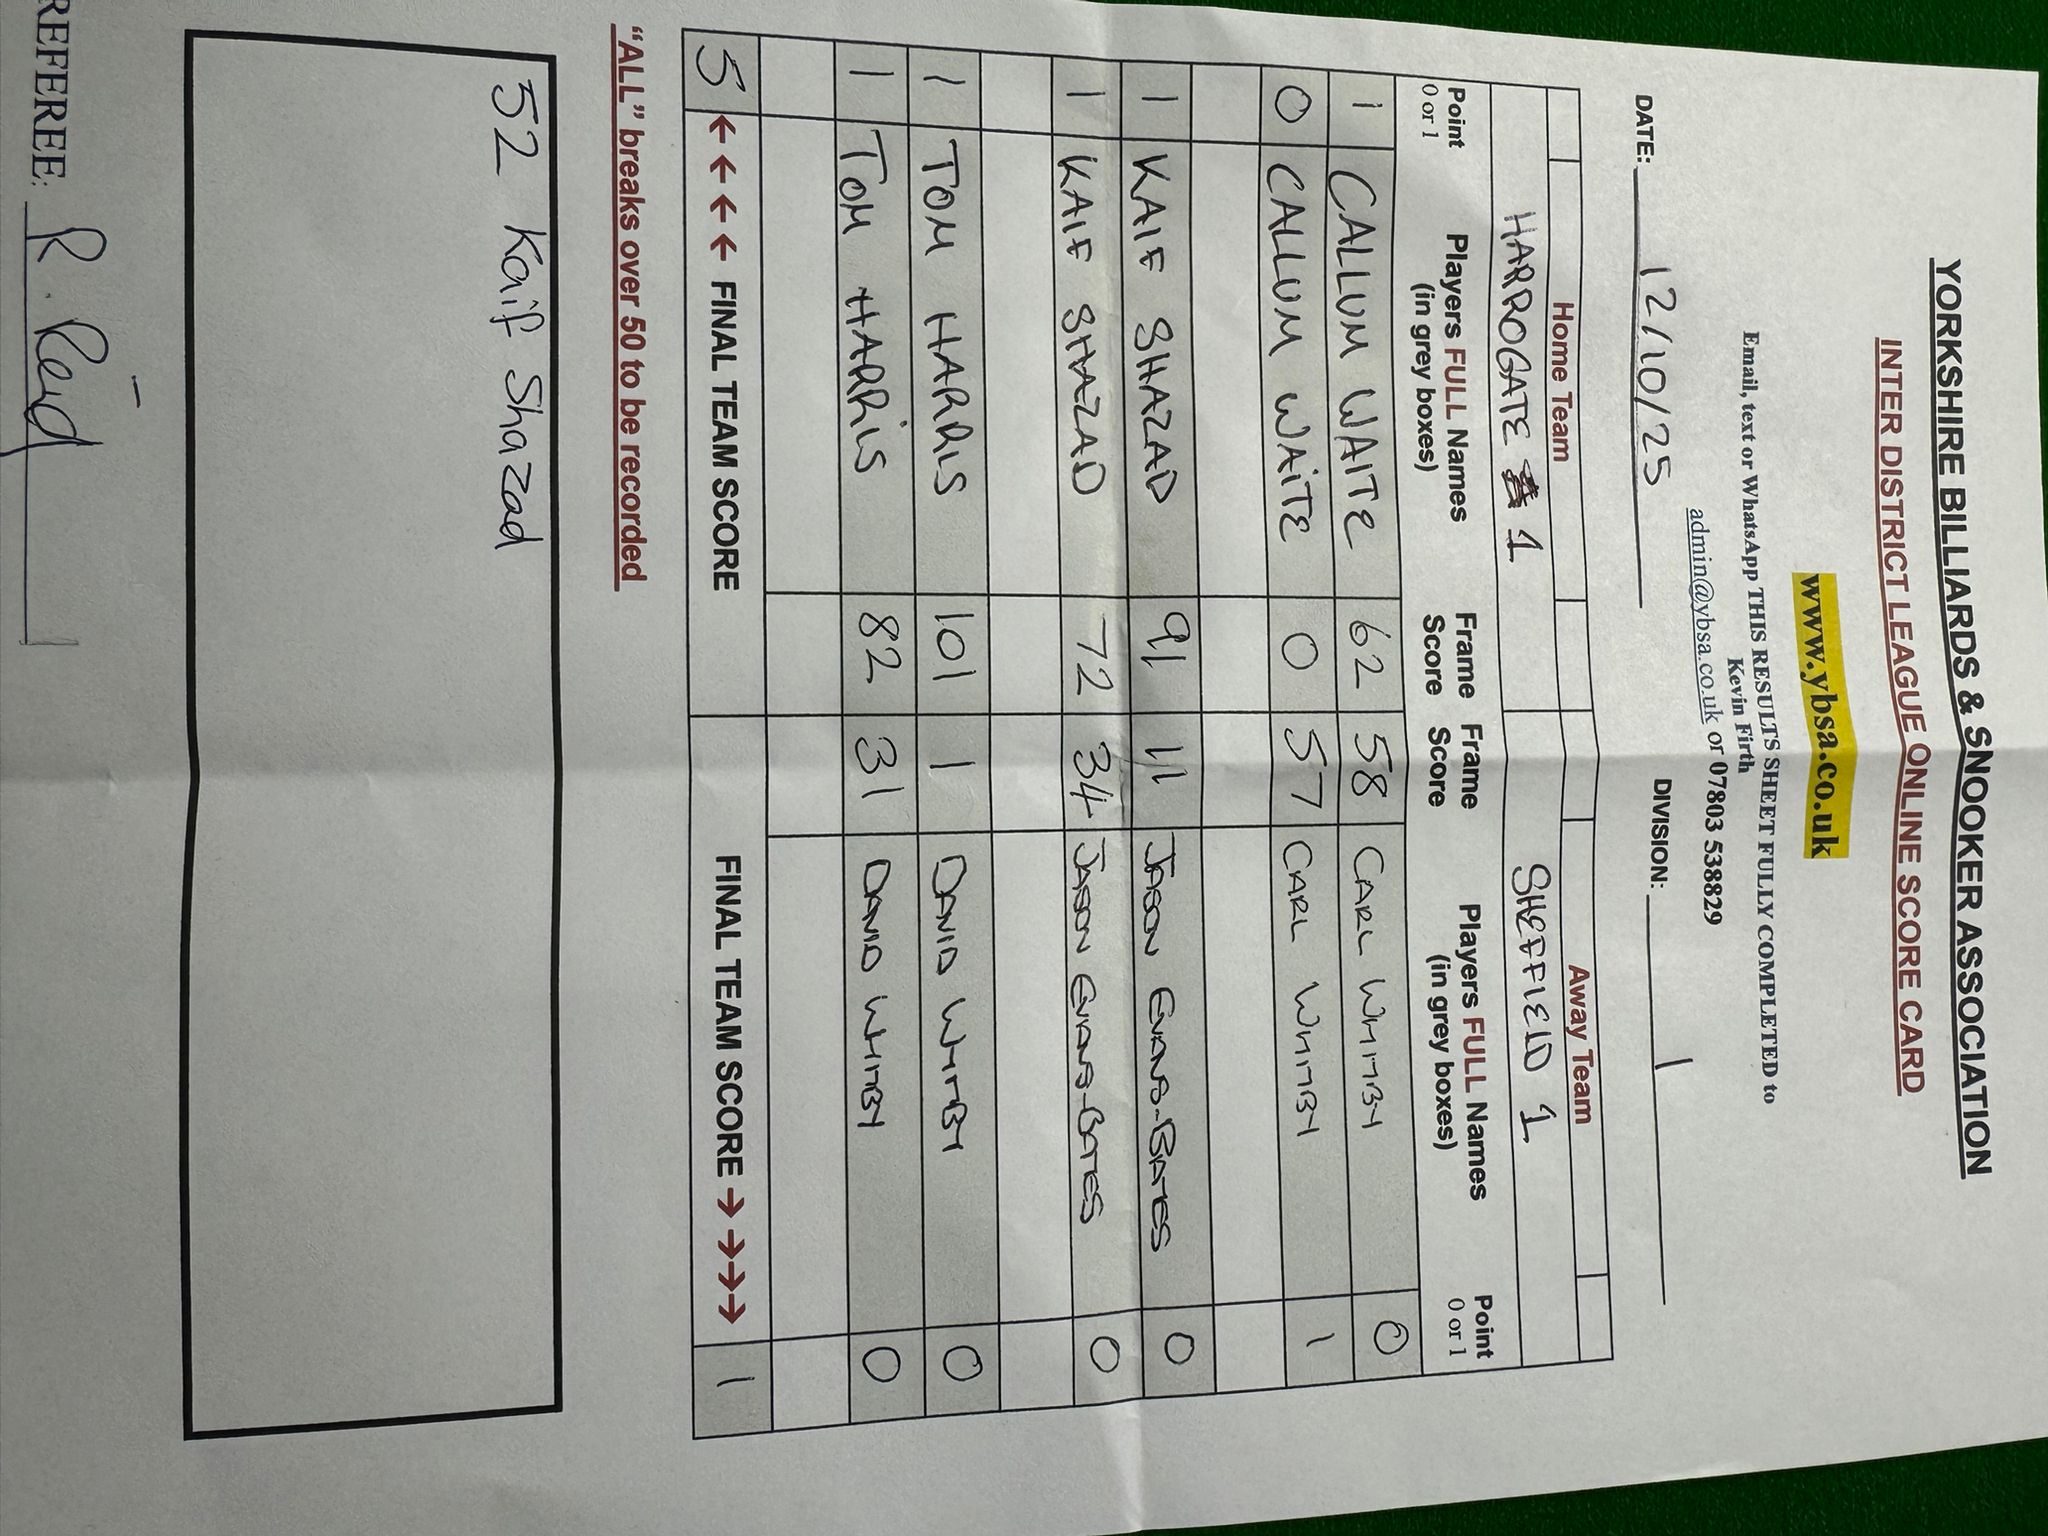 YORKSHIRE BILLIARDS & SNOOKER ASSOCIATION
INTER DISTRICT LEAGUE ONLINE SCORE CARD
www.ybsa.co.uk
Email, text or WhatsApp THIS RESULTS SHEET FULLY COMPLETED to
Kevin Firth
admin@ybsa.co.uk or 07803 538829
DATE: 12/10/25 DIVISION: 1
Home Team Away Team
HARROGATE 1 SHEFFIELD 1
Point 0 or 1 Players FULL Names (in grey boxes) Frame Score Frame Score Players FULL Names (in grey boxes) Point 0 or 1
1 CALLUM WAITE 62 58 CARL WHITBY 0
0 CALLUM WAITE 0 57 CARL WHITBY 1
1 KAIF SHAZAD 91 11 JASON EVANS-BATES 0
1 KAIF SHAZAD 72 34 JASON EVANS-BATES 0
1 TOM HARRIS 101 1 DAVID WHITBY 0
1 TOM HARRIS 82 31 DAVID WHITBY 0
5 ← ← ← ← FINAL TEAM SCORE FINAL TEAM SCORE → → → → 1
"ALL" breaks over 50 to be recorded
52 Kaif Shazad
REFEREE: R. Reid